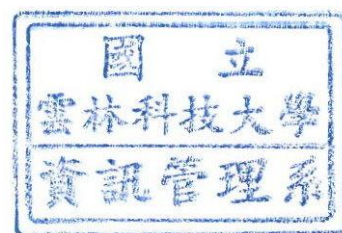 國 立
雲林科技大學
資訊管理系